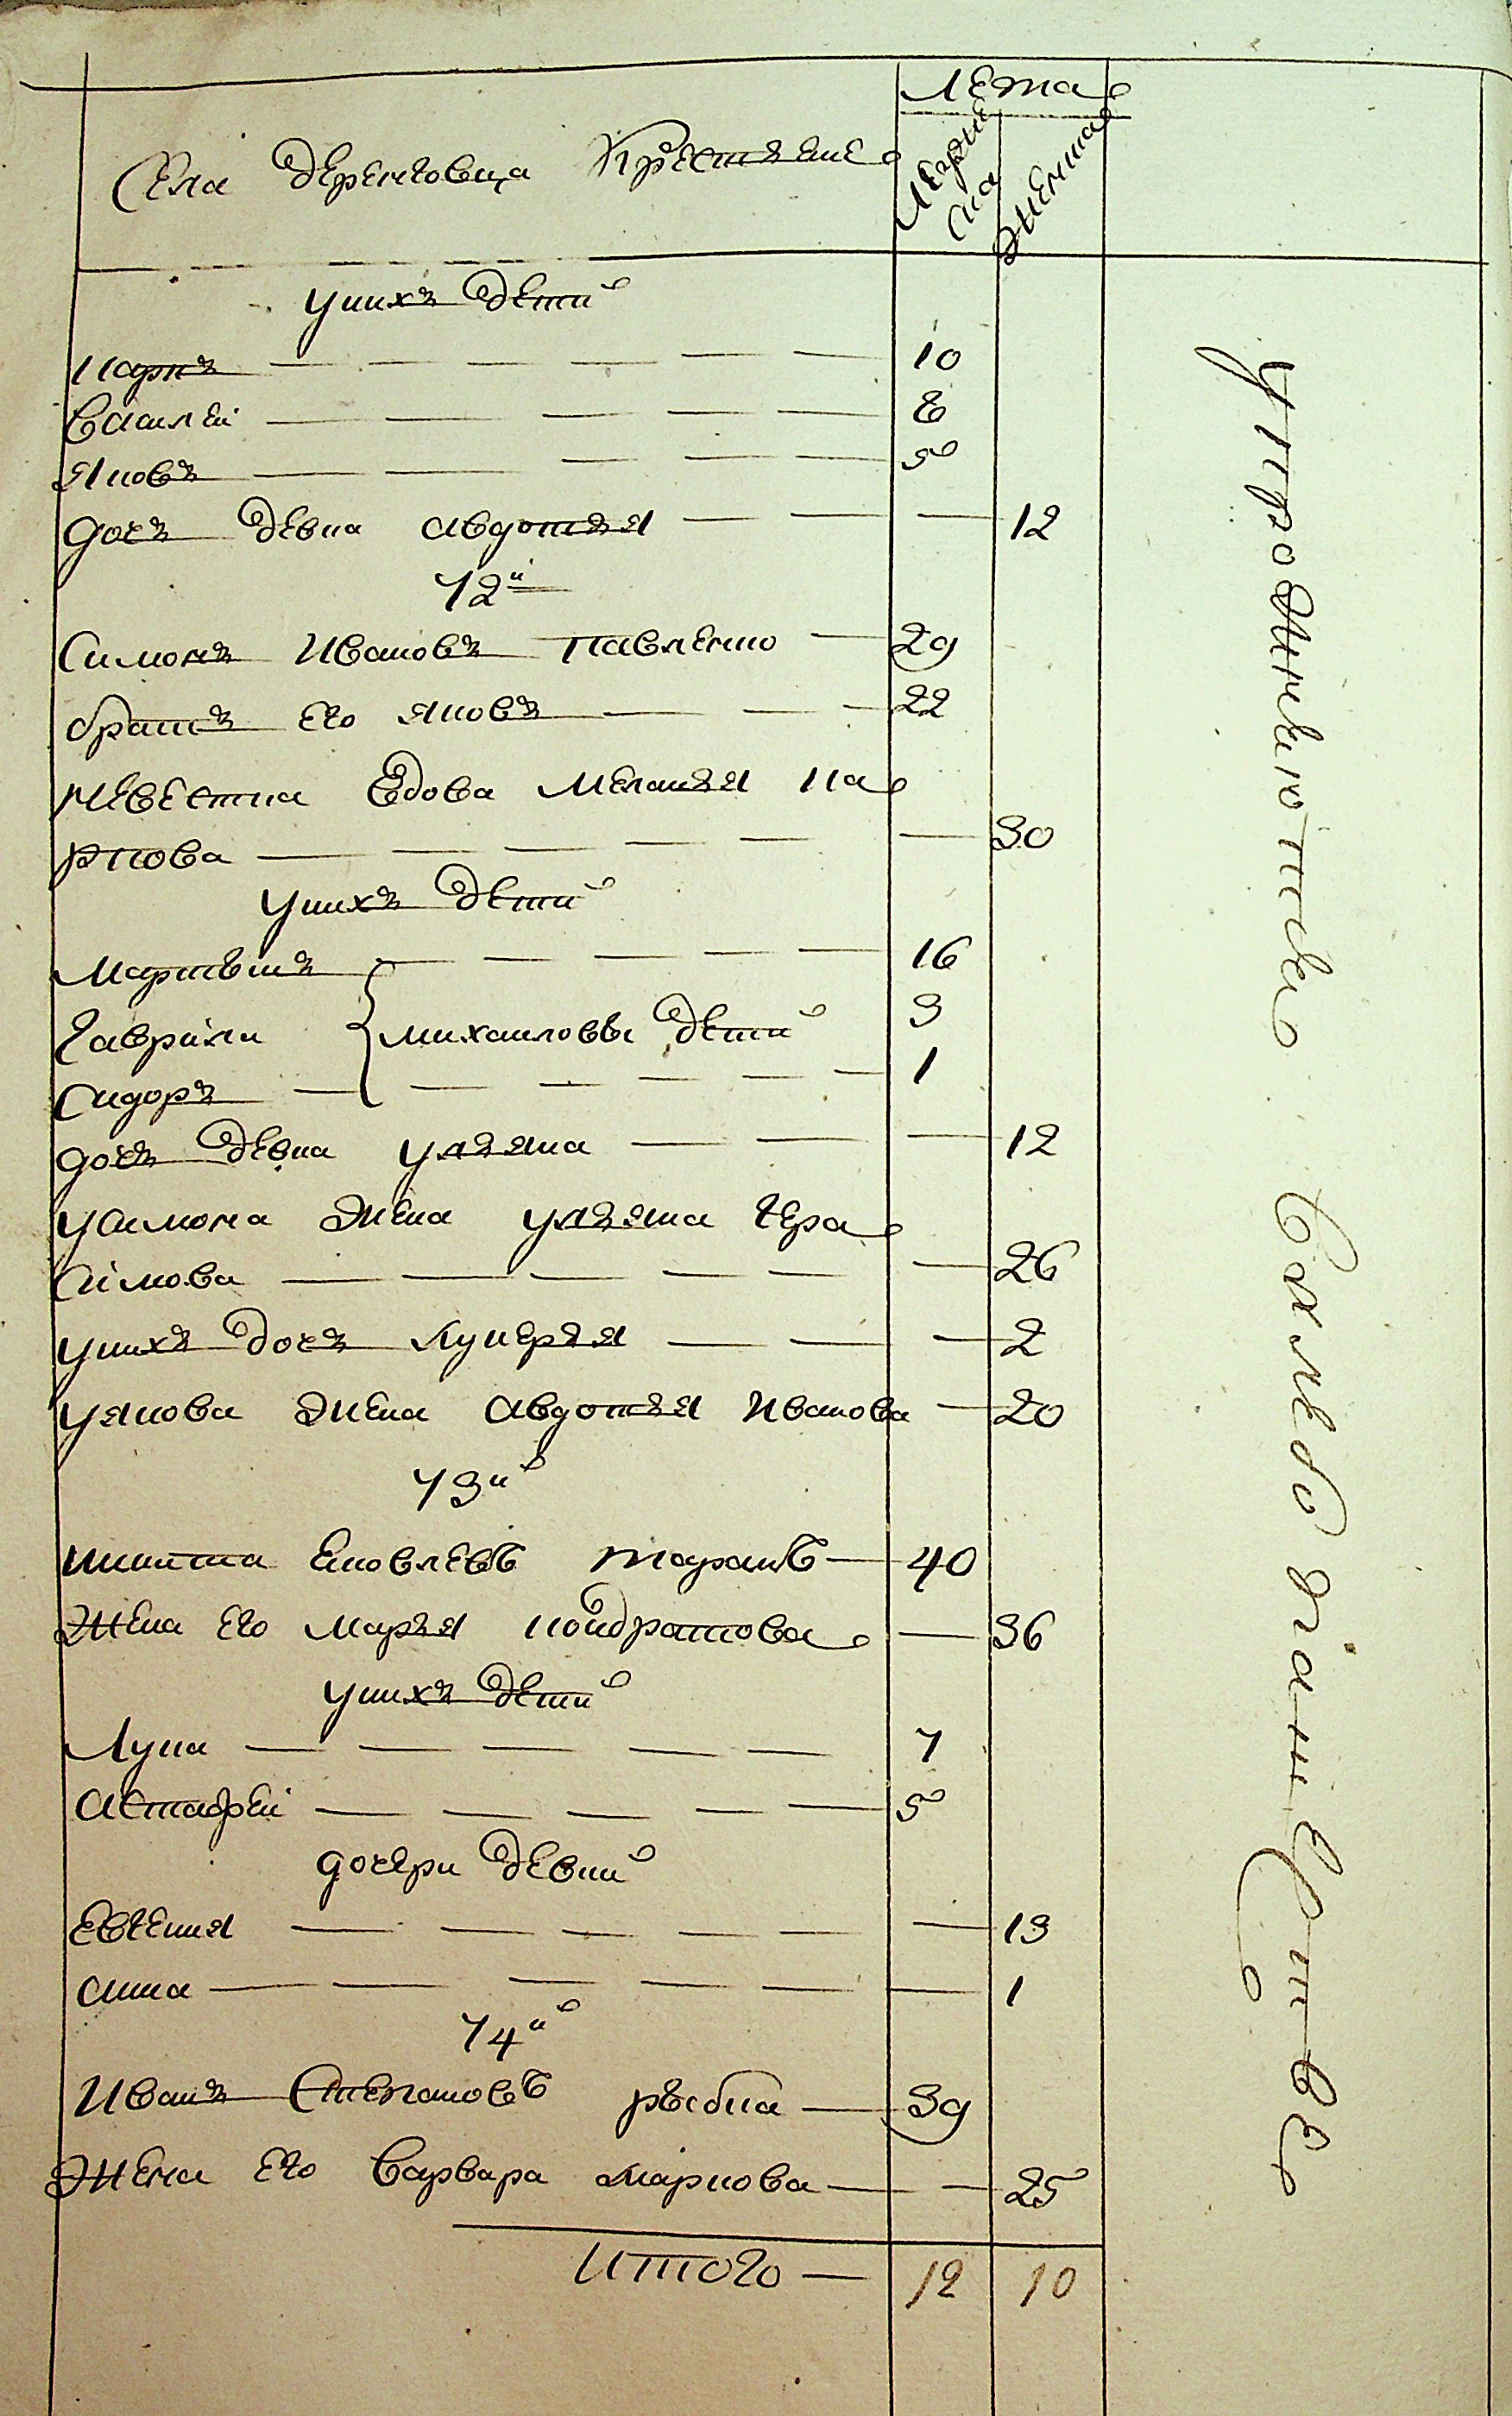 Лета
Села Деренковца Крестяне
Мужеска
Женска
У нихъ дети
Карпъ 10
Василей 8
Яковъ 5
Дочь девка Авдотья 12
72й
Симонъ Ивановъ Павленко 29
Братъ его Яковъ 22
Невестка вдова Меланья Ка
рпова 30
У нихъ дети
Мартынъ 16
Гаврила Михаиловы дети 3
Сидоръ 1
Дочь девка Ульяна 12
У Симона жена Ульяна Гера
симова 26
У нихъ дочь Лукерья 2
У Якова жена Авдотья Иванова 20
73й
Никита Яковлевъ Таранъ 40
Жена его Марья Кондратова 36
У нихъ дети
Лука 7
Астафей 5
Дочери девки
Евгения 13
Анна 1
74й
Иванъ Степановъ Рыбка 39
Жена его Варвара Маркова 25
Итого 12 10